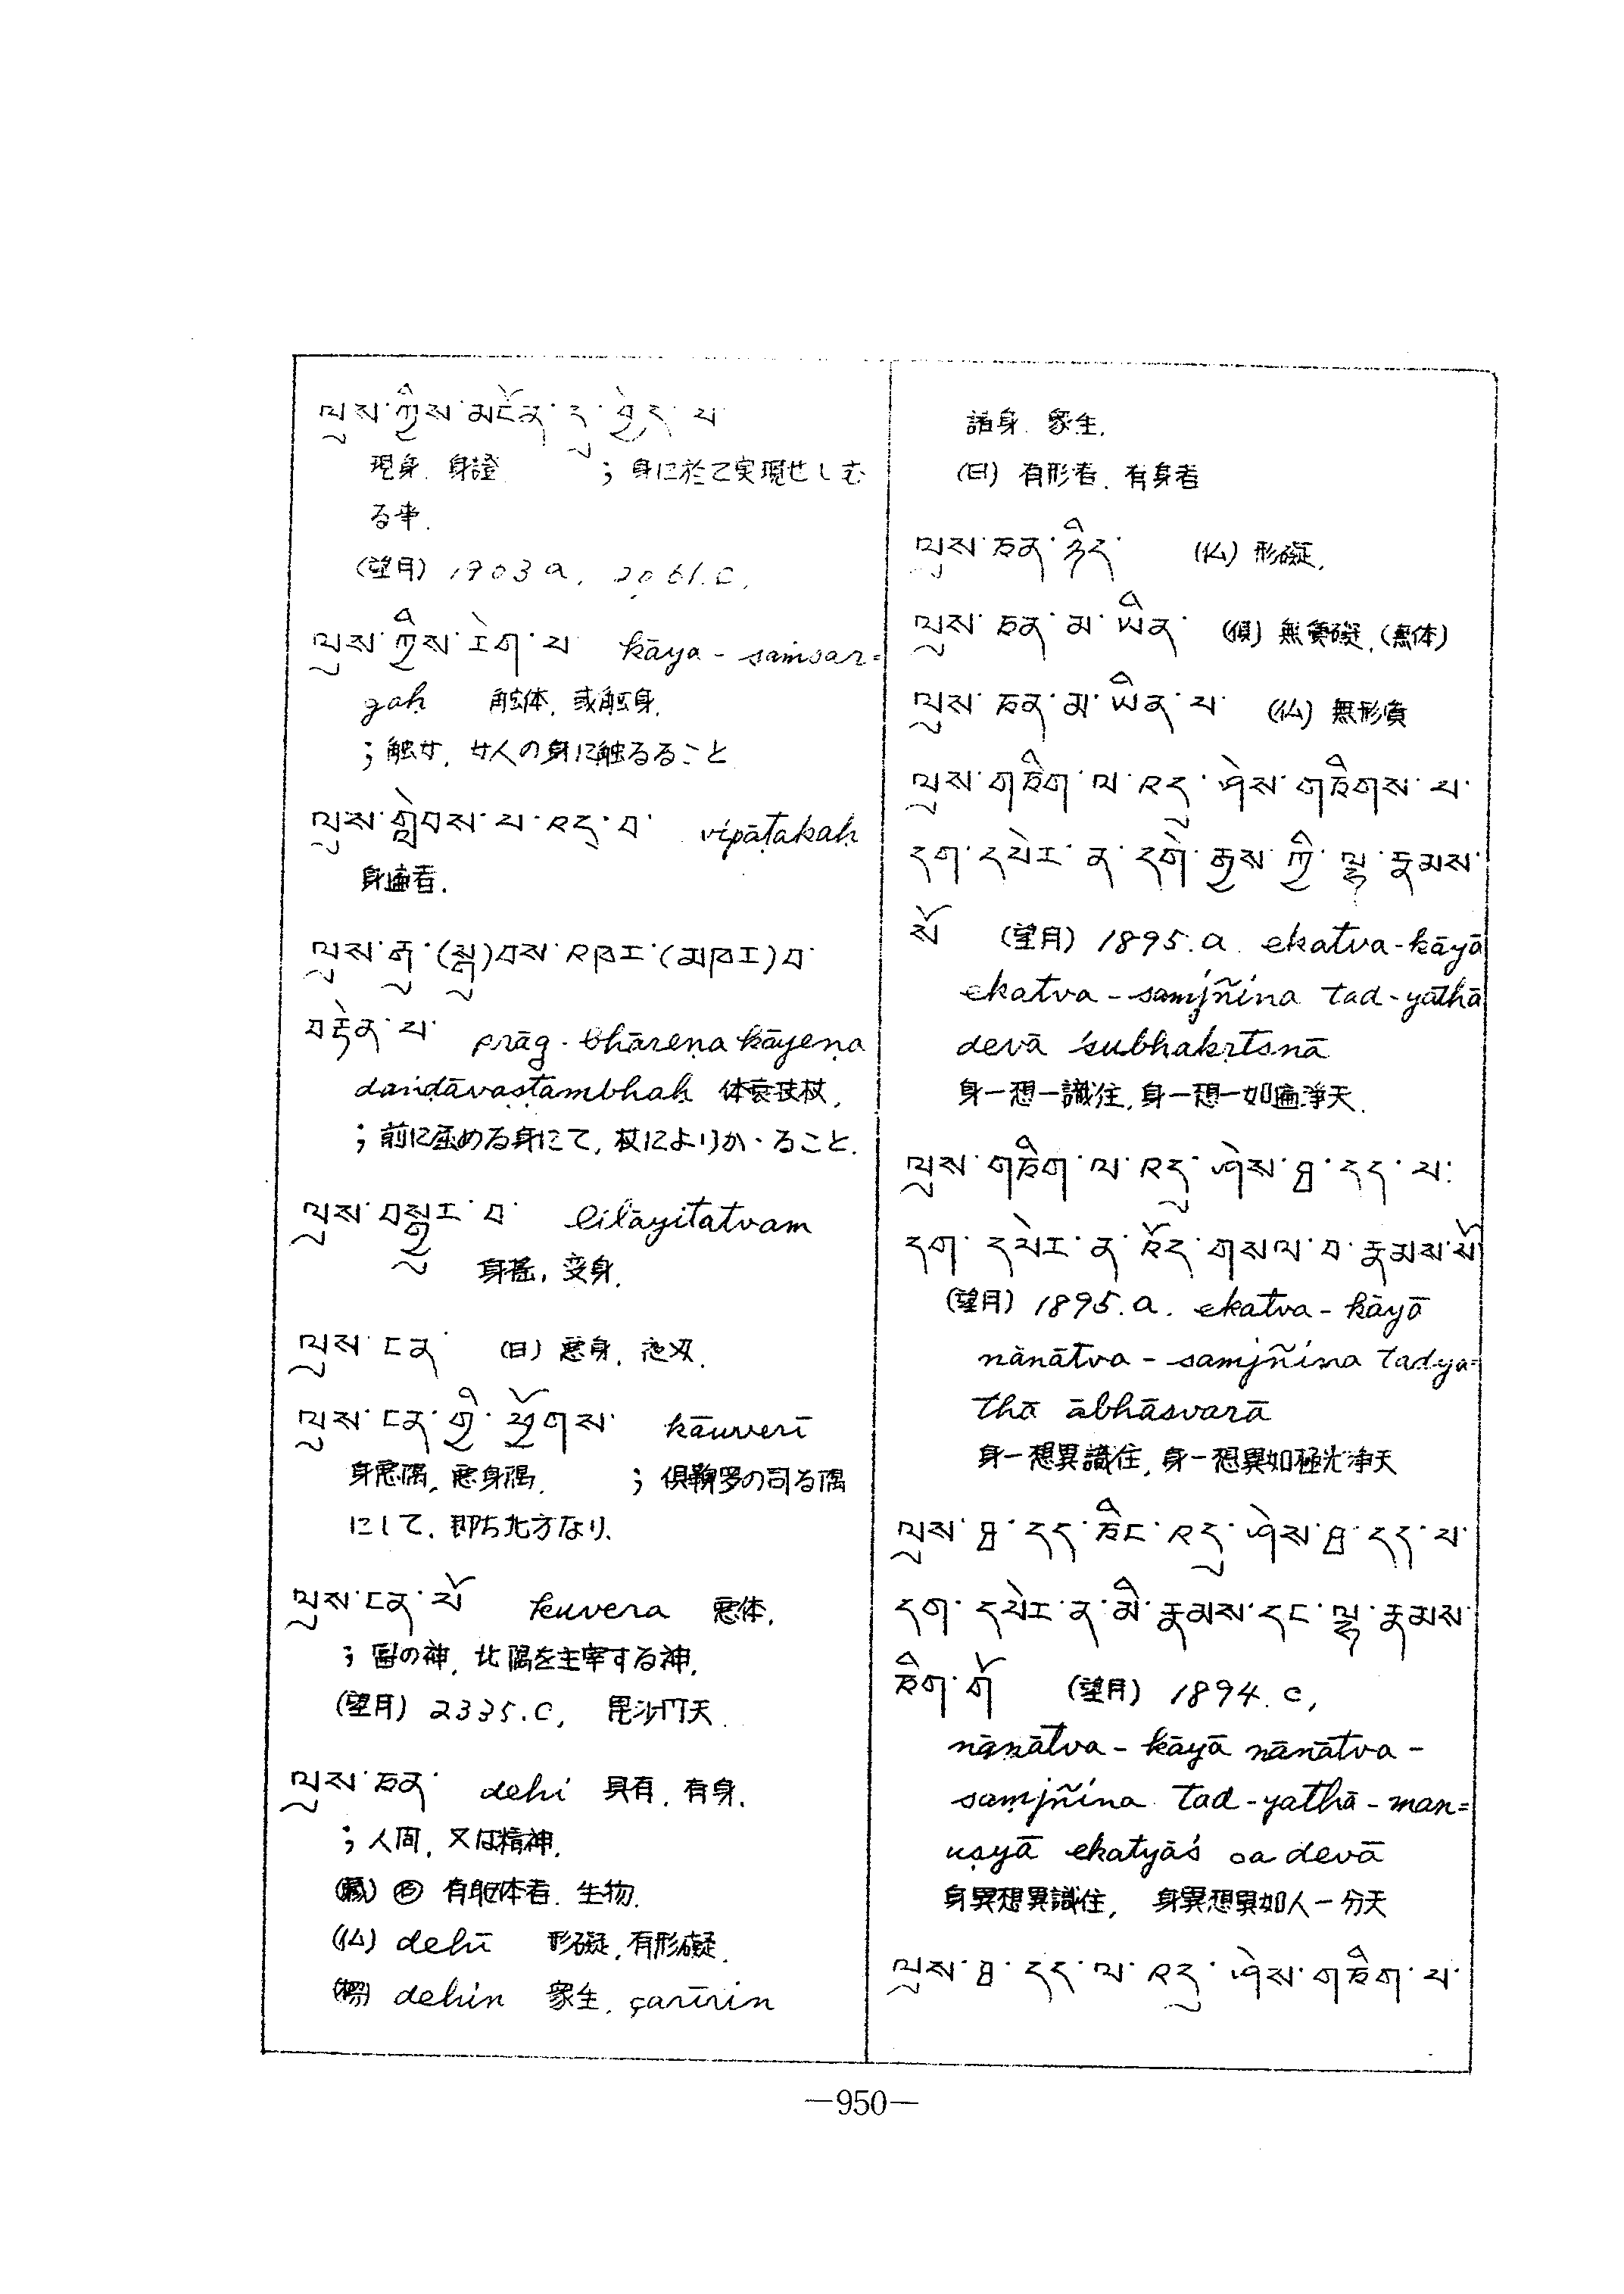 ལུས་ཀྱིས་མངོན་དུ་བྱེད་པ
現身. 身證 ; 身に於て実現せしむ
る事.
(望月) 1903a, 2061.c,
ལུས་ཀྱིས་རེག་པ kāya-saṁsar=
gaḥ 触体, 或触身.
; 触女, 女人の身に触るること
ལུས་ཀླེབས་པ་འདྲ་བ vipāṭakaḥ
身遍者.
ལུས་རྟ་(སྒུ)བས་འཁར་(མཁར)བ་
བརྟེན་པ prāg-bhāreṇa kāyeṇa
daṁḍāvaṣṭambhaḥ 体衰扶杖,
; 前に屈める身にて, 杖によりかゝること.
ལུས་བསྒྱུར་བ lilāyitatvam
身搖, 変身.
ལུས་ངན (日) 悪身, 夜叉.
ལུས་ངན་གྱི་ཕྱོགས kāuverī
身悪隅, 悪身隅. ; 倶鞞羅の司る隅
にして, 即ち北方なり.
ལུས་ངན་པོ kuvera 悪体,
; 冨の神, 北隅を主宰する神.
(望月) 2335.c, 毘沙門天.
ལུས་ཅན dehi 具有, 有身.
; 人間, 又は精神.
(蔵) 有躯体者. 生物.
(仏) dehī 形礙, 有形礙.
dehin 衆生, çarīrin
諸身. 衆生.
(日) 有形者, 有身者
ལུས་ཅན་ཉིད (仏) 形礙,
ལུས་ཅན་མ་ཡིན 無質礙, (無体)
ལུས་ཅན་མ་ཡིན་པ (仏) 無形質
ལུས་གཅིག་ལ་འདུ་ཤེས་གཅིགས་པ་
དག་དཔེར་ན་དགེ་རྒྱས་ཀྱི་ལྷ་རྣམས་
སོ (望月) 1895.a. ekatva-kāyā
ekatva-samjñina tad-yāthā
devā śubhakṛtsnā
身一想一識住, 身一想一如遍淨天.
ལུས་གཅིག་ལ་འདུ་ཤེས་ཐ་དད་པ་
དག་དཔེར་ན་འོད་གསལ་བ་རྣམས་སོ
(望月) 1895.a. ekatva-kāyā
nānātva-samjñina tadya=
thā ābhāsvarā
身一想異識住, 身一想異如極光淨天
ལུས་ཐ་དད་ཅིང་འདུ་ཤེས་ཐ་དད་པ་
དག་དཔེར་ན་མི་རྣམས་དང་ལྷ་རྣམས་
ཅིག་གོ (望月) 1894.c,
nānātva-kāyā nānātva-
saṃjñina tad-yathā-man=
uṣyā ekatyāś ca devā
身異想異識住, 身異想異如人一分天
ལུས་ཐ་དད་ལ་འདུ་ཤེས་གཅིག་པ་
—950—